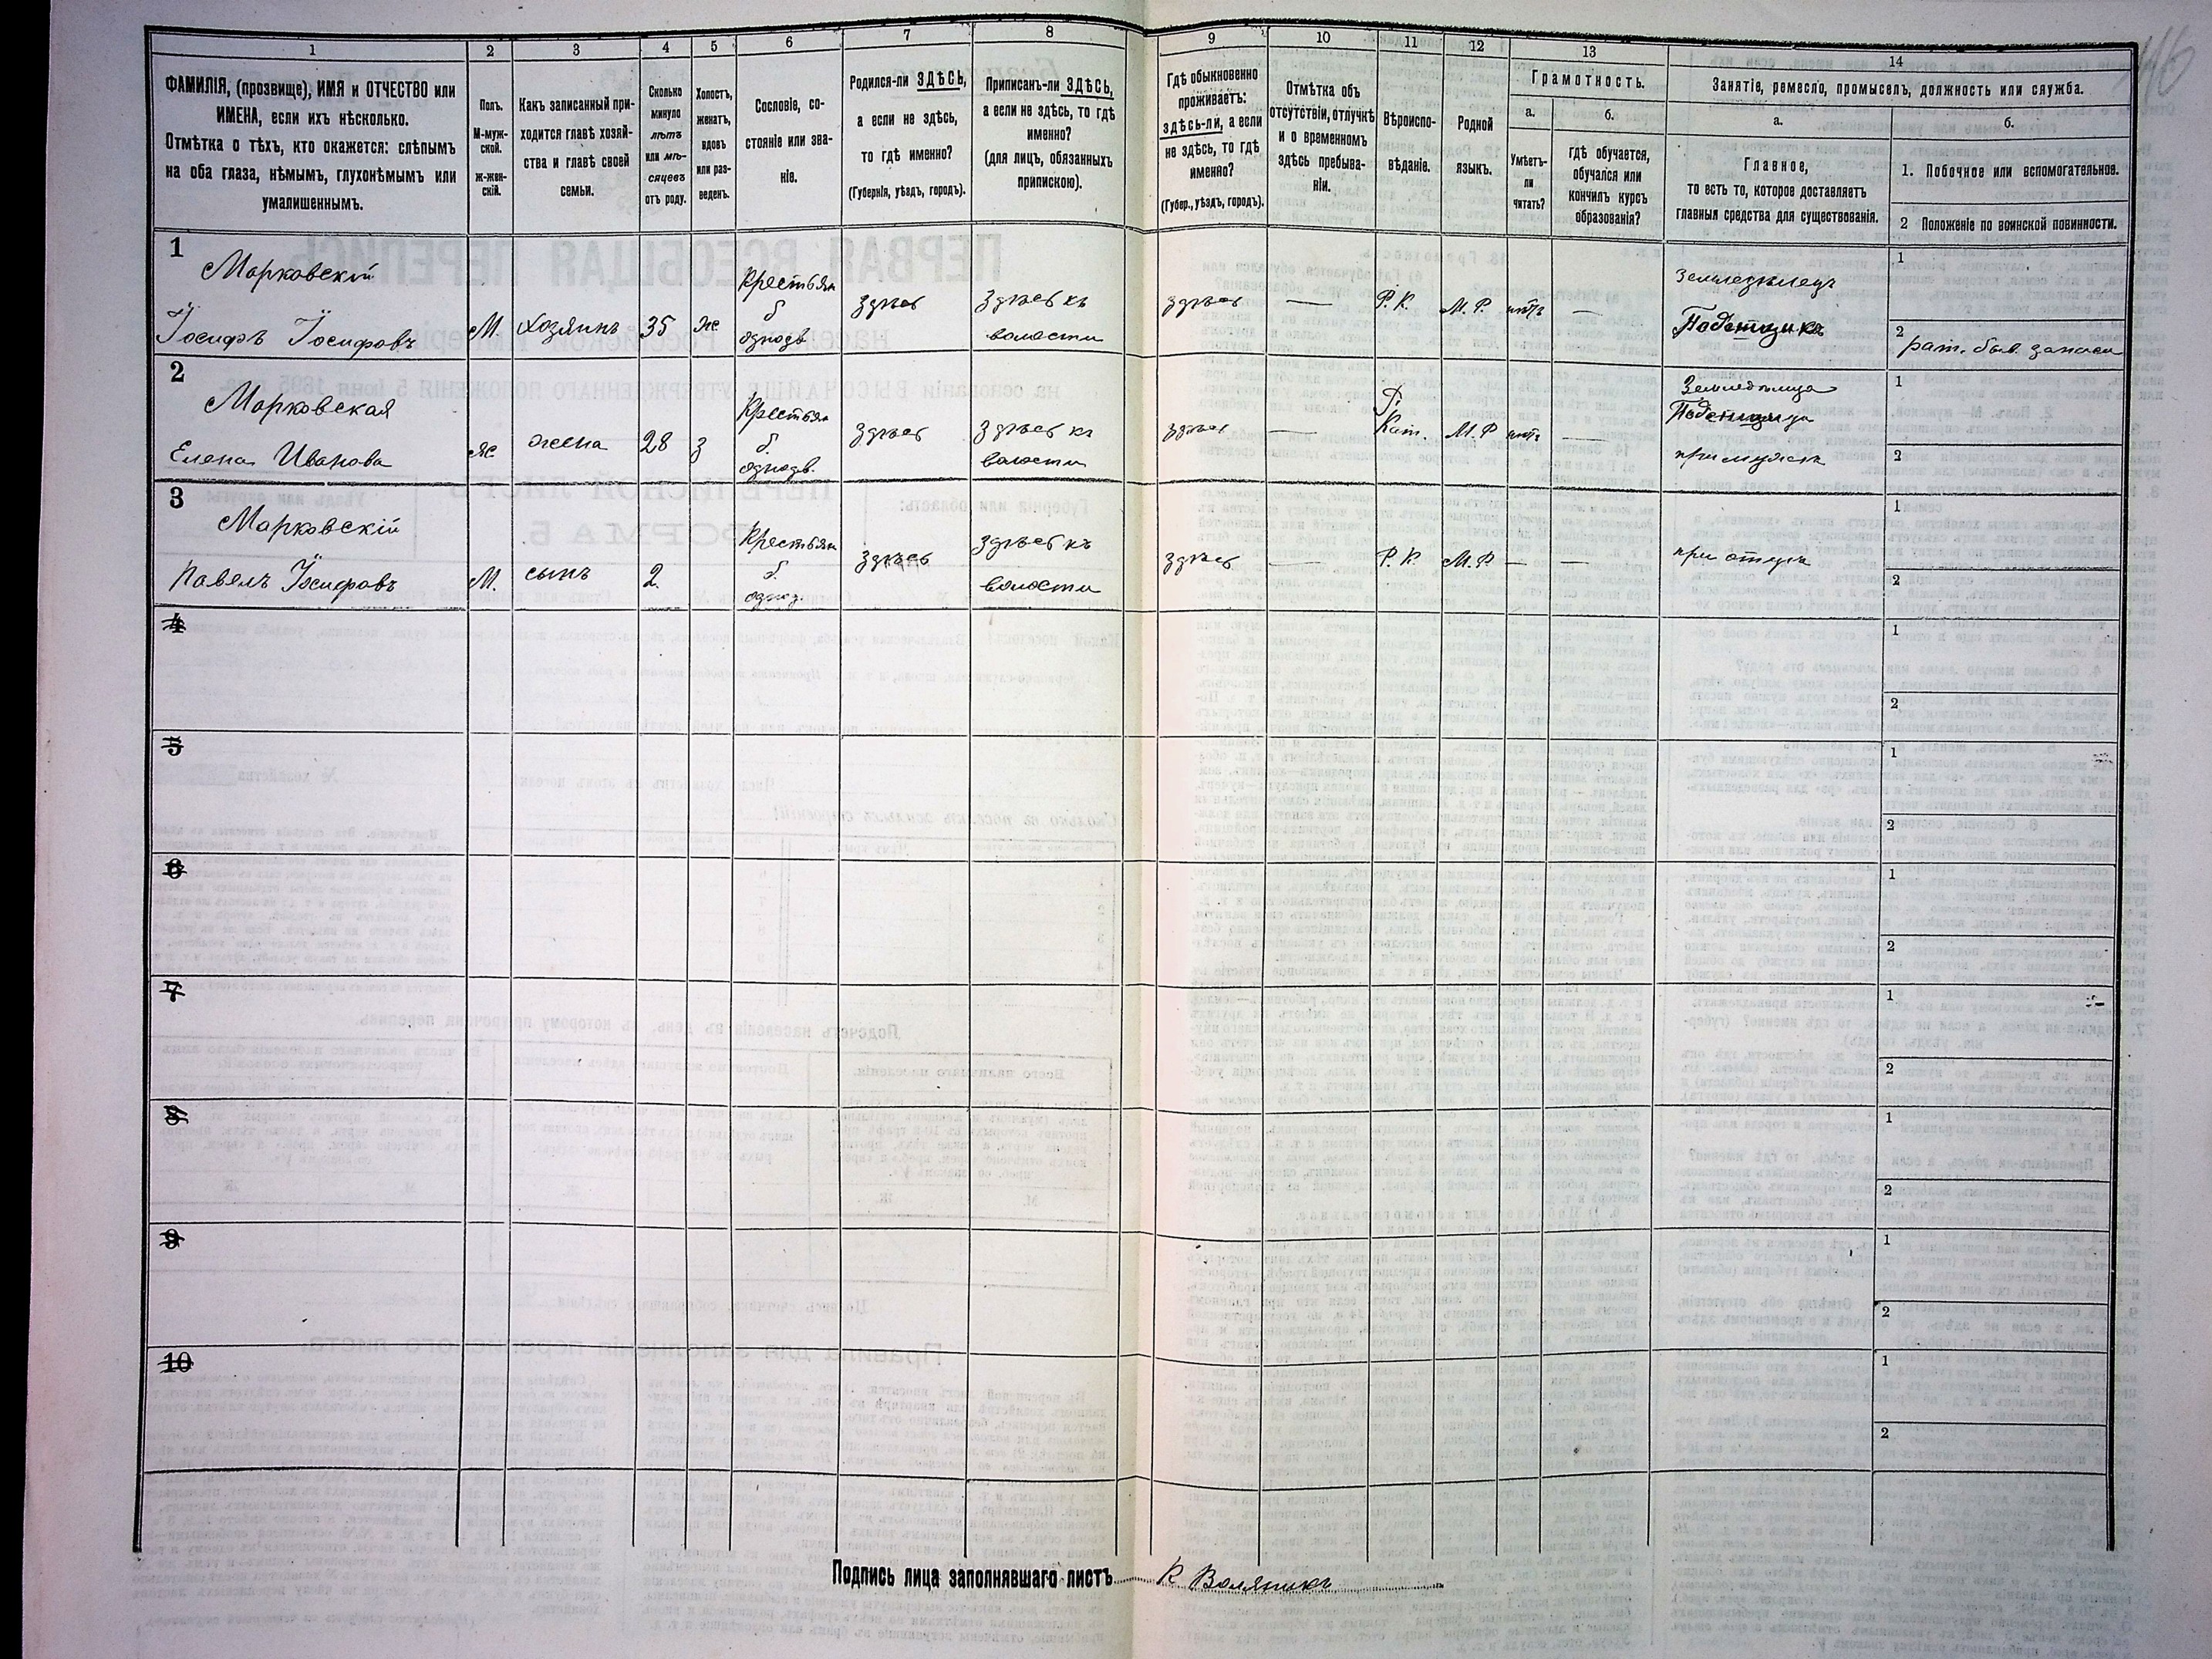 1
2
3
4
5
6
7
8
9
10
11
12
13
14
ФАМИЛІЯ, (прозвище), ИМЯ и ОТЧЕСТВО или
ИМЕНА, если ихъ нѣсколько.
Отмѣтка о тѣхъ, кто окажется: слѣпымъ
на оба глаза, нѣмымъ, глухонѣмымъ или
умалишеннымъ.
Полъ.
М-муж-
ской.
ж-жен-
скій.
Какъ записанный при-
ходится главѣ хозяй-
ства и главѣ своей
семьи.
Сколько
минуло
лѣтъ
или мѣ-
сяцевъ
отъ роду.
Холостъ,
женатъ,
вдовъ
или раз-
веденъ.
Сословіе, со-
стояніе или зва-
ніе.
Родился-ли ЗДѢСЬ,
а если не здѣсь,
то гдѣ именно?
(Губернія, уѣздъ, городъ).
Приписанъ-ли ЗДѢСЬ,
а если не здѣсь, то гдѣ
именно?
(для лицъ, обязанныхъ
припискою).
Гдѣ обыкновенно
проживаетъ:
здѣсь-ли, а если
не здѣсь, то гдѣ
именно?
(Губер., уѣздъ, городъ).
Отмѣтка объ
отсутствіи, отлучкѣ
и о временномъ
здѣсь пребыва-
ніи.
Вѣроиспо-
вѣданіе.
Родной
языкъ.
Грамотность.
а.
Умѣетъ-
ли
читать?
б.
гдѣ обучается,
обучался или
кончилъ курсъ
образованія?
Занятіе, ремесло, промыселъ, должность или служба.
а.
Главное,
то есть то, которое доставляетъ
главныя средства для существованія.
б.
1. Побочное или вспомогательное.
2 Положеніе по воинской повинности.
1
Марковскій
Іосифъ Іосифовъ
М.
хозяинъ
35
ж
Крестьян
б
однодв
здѣсь
здѣсь къ
волости
здѣсь
—
Р. К.
М. Р.
нѣтъ
—
Земледѣлецъ
1
2
рат. быв. запаса
2
Марковская
Елена Иванова
ж
жена
28
з
Крестьян
б.
однодв.
здѣсь
здѣсь къ
волости
здѣсь
—
Р.
Кат.
М. Р
нѣтъ
—
Земледѣлица
при мужѣ
1
2
3
Марковскій
Павелъ Іосифовъ
М.
сынъ
2.
Крестьян
б.
однод.
здѣсь
здѣсь къ
волости
здѣсь
—
Р. К.
М. Р
—
—
при отцѣ
1
2
4
1
2
5
1
2
6
1
2
7
1
2
8
1
2
9
1
2
10
1
2
Подпись лица заполнявшаго листъ